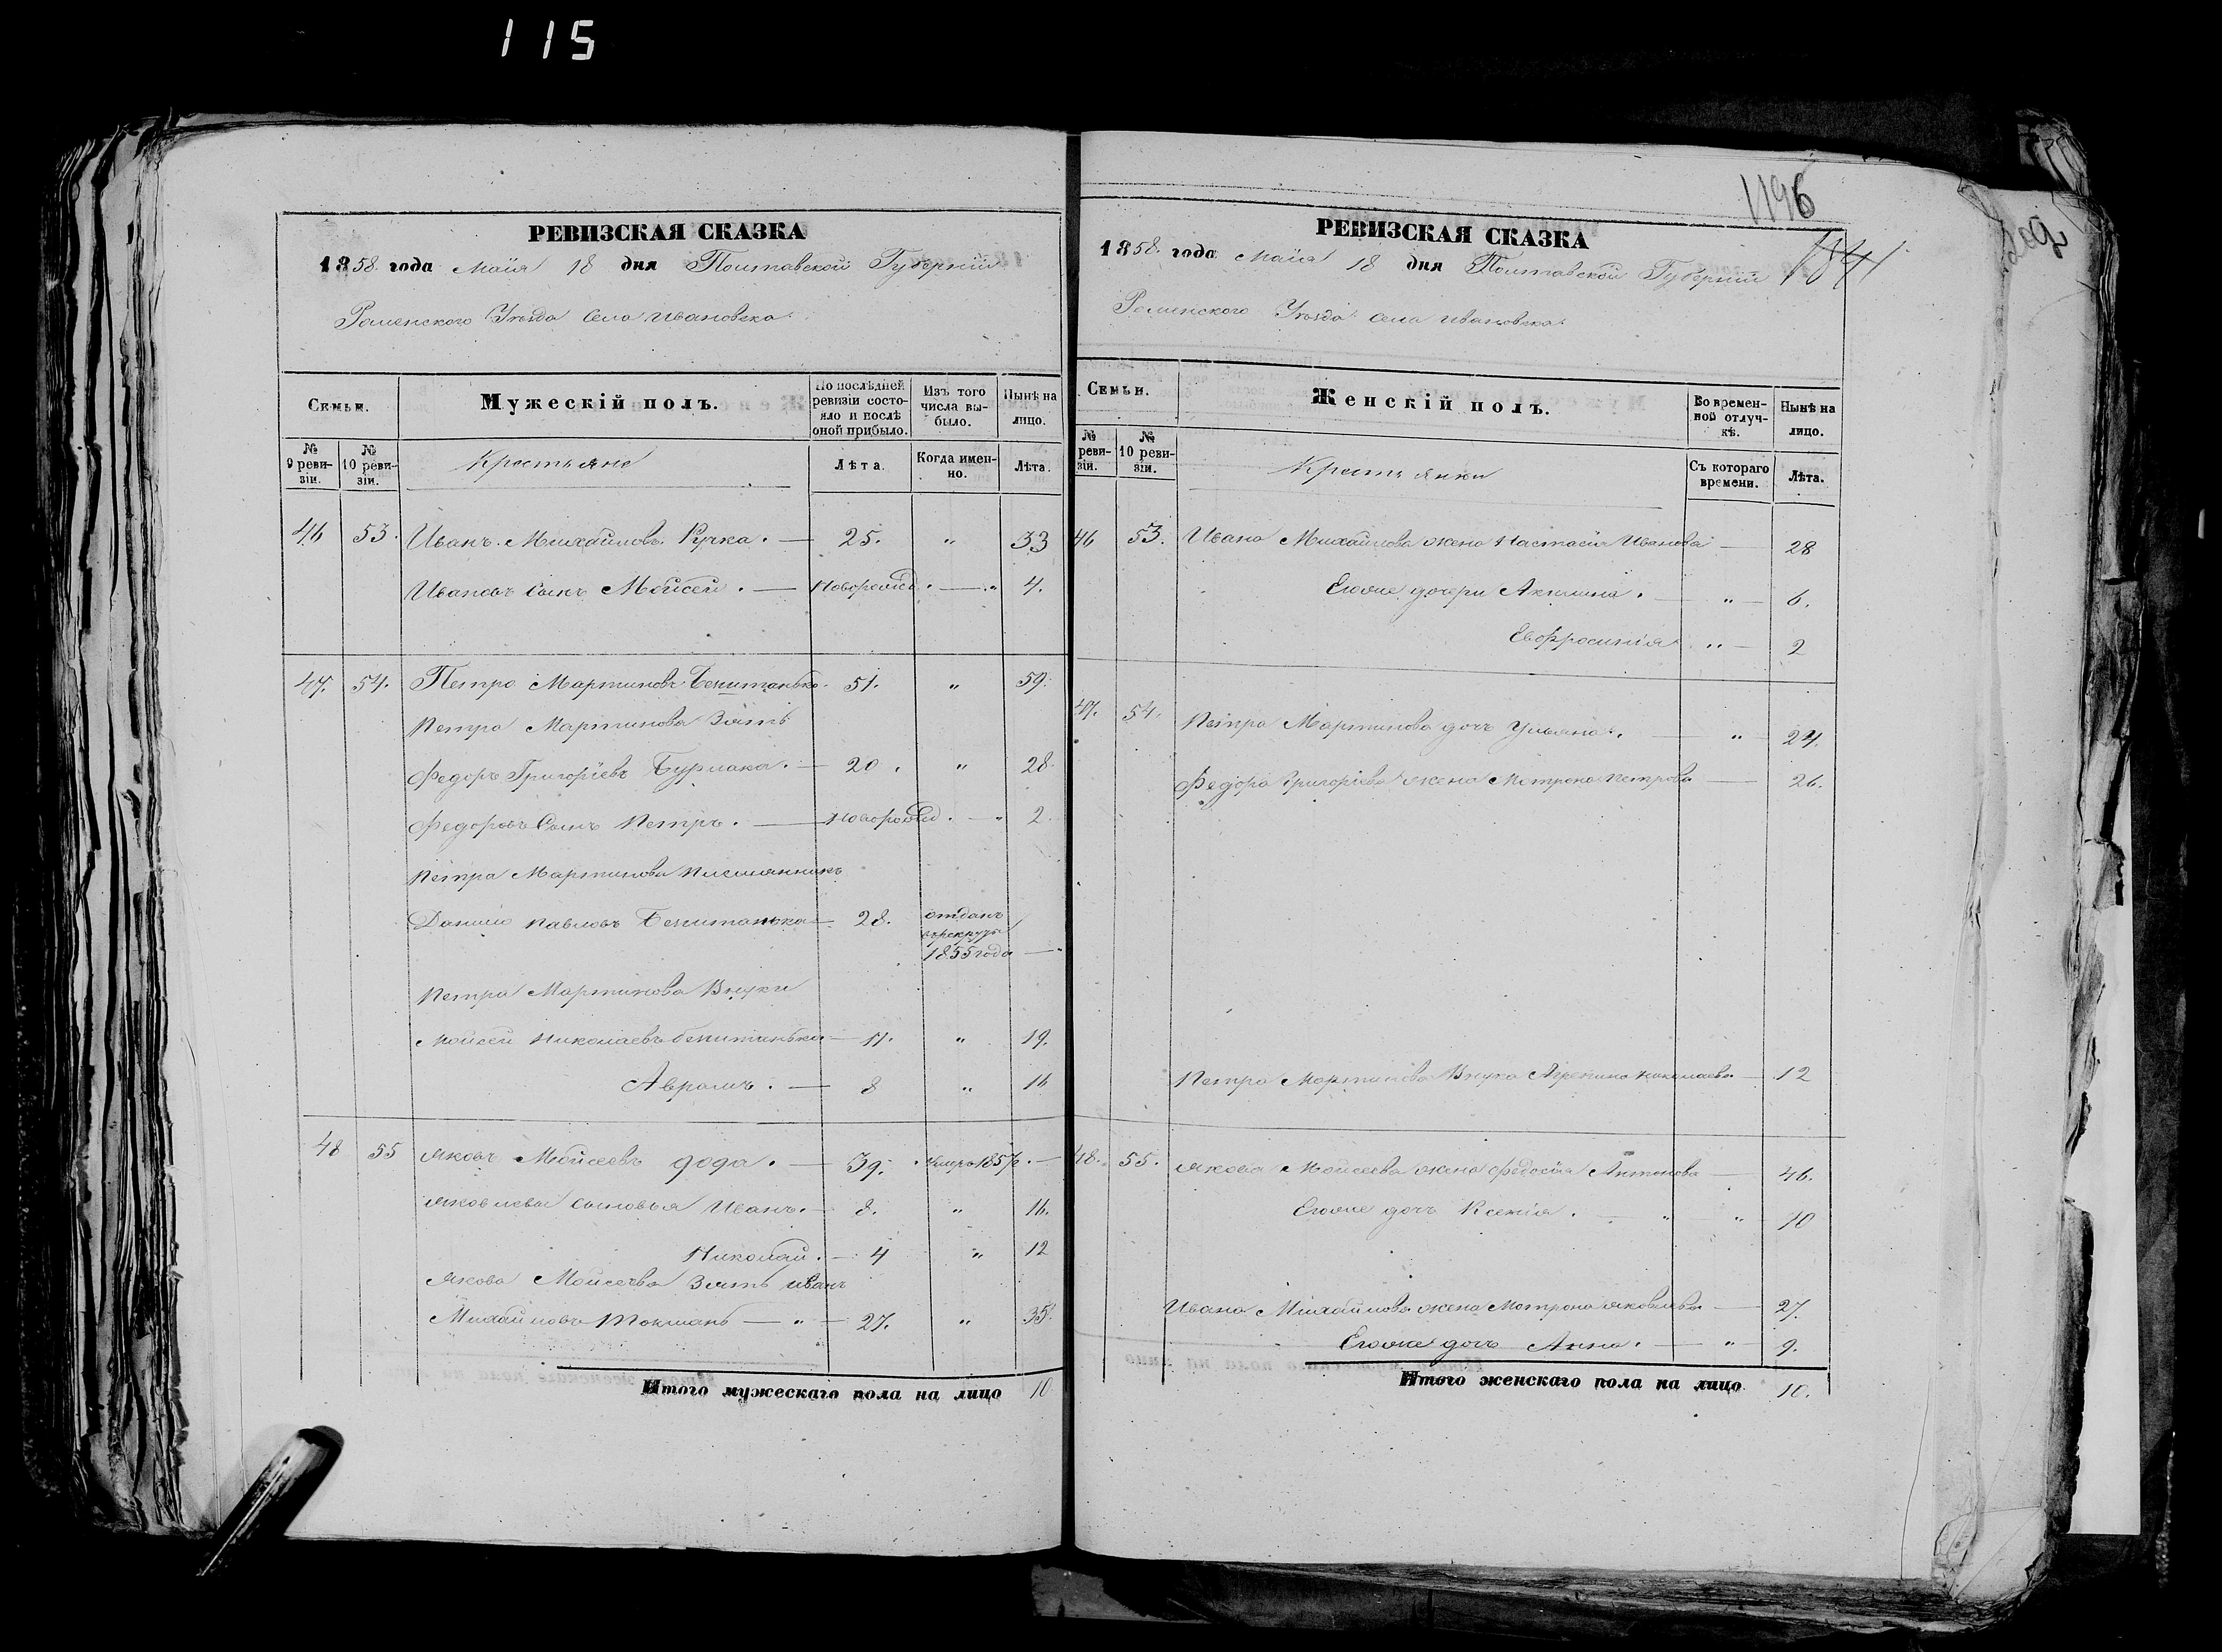 115
РЕВИЗСКАЯ СКАЗКА
1858 года Маія 18 дня Полтавской Губерніи
Роменского Уѣзда Села Ивановска
Семьи.
Мужескій полъ.
По послѣдней ревизіи состояло и послѣ оной прибыло.
Изъ того числа выбыло.
Нынѣ на лицо.
№ 9 ревизіи.
№ 10 ревизіи.
Крестьяне
Лѣта.
Когда именно.
Лѣта.
46 53. Иванъ Михайловъ Ручка. — 25. „ 33
Ивановъ Сынъ Мойсей. — Новорожд. — „ 4.
47. 54. Петро Мартиновъ 51. „ 59.
Петра Мартинова Зять
Федоръ Григоріевъ Бурлака. — 20. „ 28.
Федоровъ Сынъ Петръ. — Новорожд. — „ 2.
Петра Мартинова племянникъ
Данило Павловъ — 28. отданъ
врекруты
1855 года —
Петра Мартинова Внуки
Мойсей Николаевъ — 11. „ 19.
Аврамъ. — 8 „ 16
48 55 Яковъ Мойсеевъ Дода. — 39. умре 1857г. —
Яковлевы сыновья Иванъ. — 8. „ 16.
Николай. — 4 „ 12
Якова Мойсеева Зять Иванъ
Михайловъ Токмань — „ — 27. „ 35.
Итого мужескаго пола на лицо 10
1196
1841
РЕВИЗСКАЯ СКАЗКА
1858 года Маія 18 дня Полтавской Губерніи
Роменского Уѣзда Села Ивановска
Семьи.
Женскій полъ.
Во временной отлучкѣ.
Нынѣ на лицо.
№ ревизіи.
№ 10 ревизіи.
Крестьянки
Съ котораго времени.
Лѣта.
46 53. Ивана Михайлова жена Настасія Иванова — 28
Егоже дочери Акилина. — „ — 6.
Евфросинія „ — 2
47. 54. Петра Мартинова дочь Ульяна. — „ 24.
Федора Григоріева жена Мотрона Петрова — 26.
Петра Мартинова Внука Агрепина Николаева — 12
48. 55. Якова Мойсеева жена Федосія Антонова — 46.
Егоже дочь Ксенія. — „ — „ 10
Ивана Михайлова жена Мотрона Яковлева — 27.
Егоже дочь Анна. — „ — 9.
Итого женскаго пола на лицо 10.